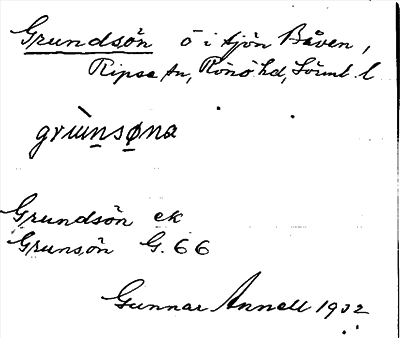 Grundsön ö i sjön Båven,
Ripsa sn, Rönö hd, Sörml. l
grùn̲sø̲na
Grundsön ek
Grunsön G. 66
Gunnar Annell 1932